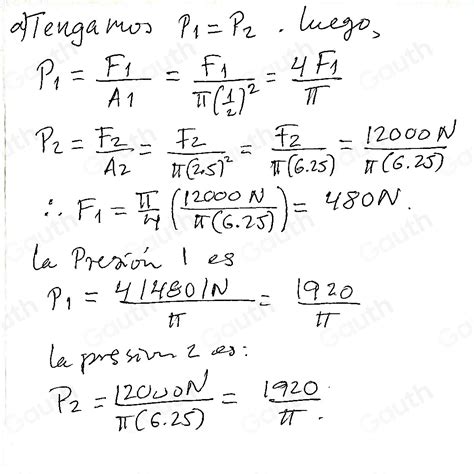 a) Tengamos P₁ = P₂ . luego,
P₁ = F₁/A1 = F₁/π(1/2)² = 4F₁/π
P₂ = F₂/A₂ = F₂/π(2.5)² = F₂/π(6.25) = 12000N/π(6.25)
∴ F₁ = π/4 (12000 N/π(6.25)) = 480N.
la Presión 1 es
P₁ = 4(480)N/π = 1920/π
la presion 2 es:
P₂ = 12000N/π(6.25) = 1920/π.